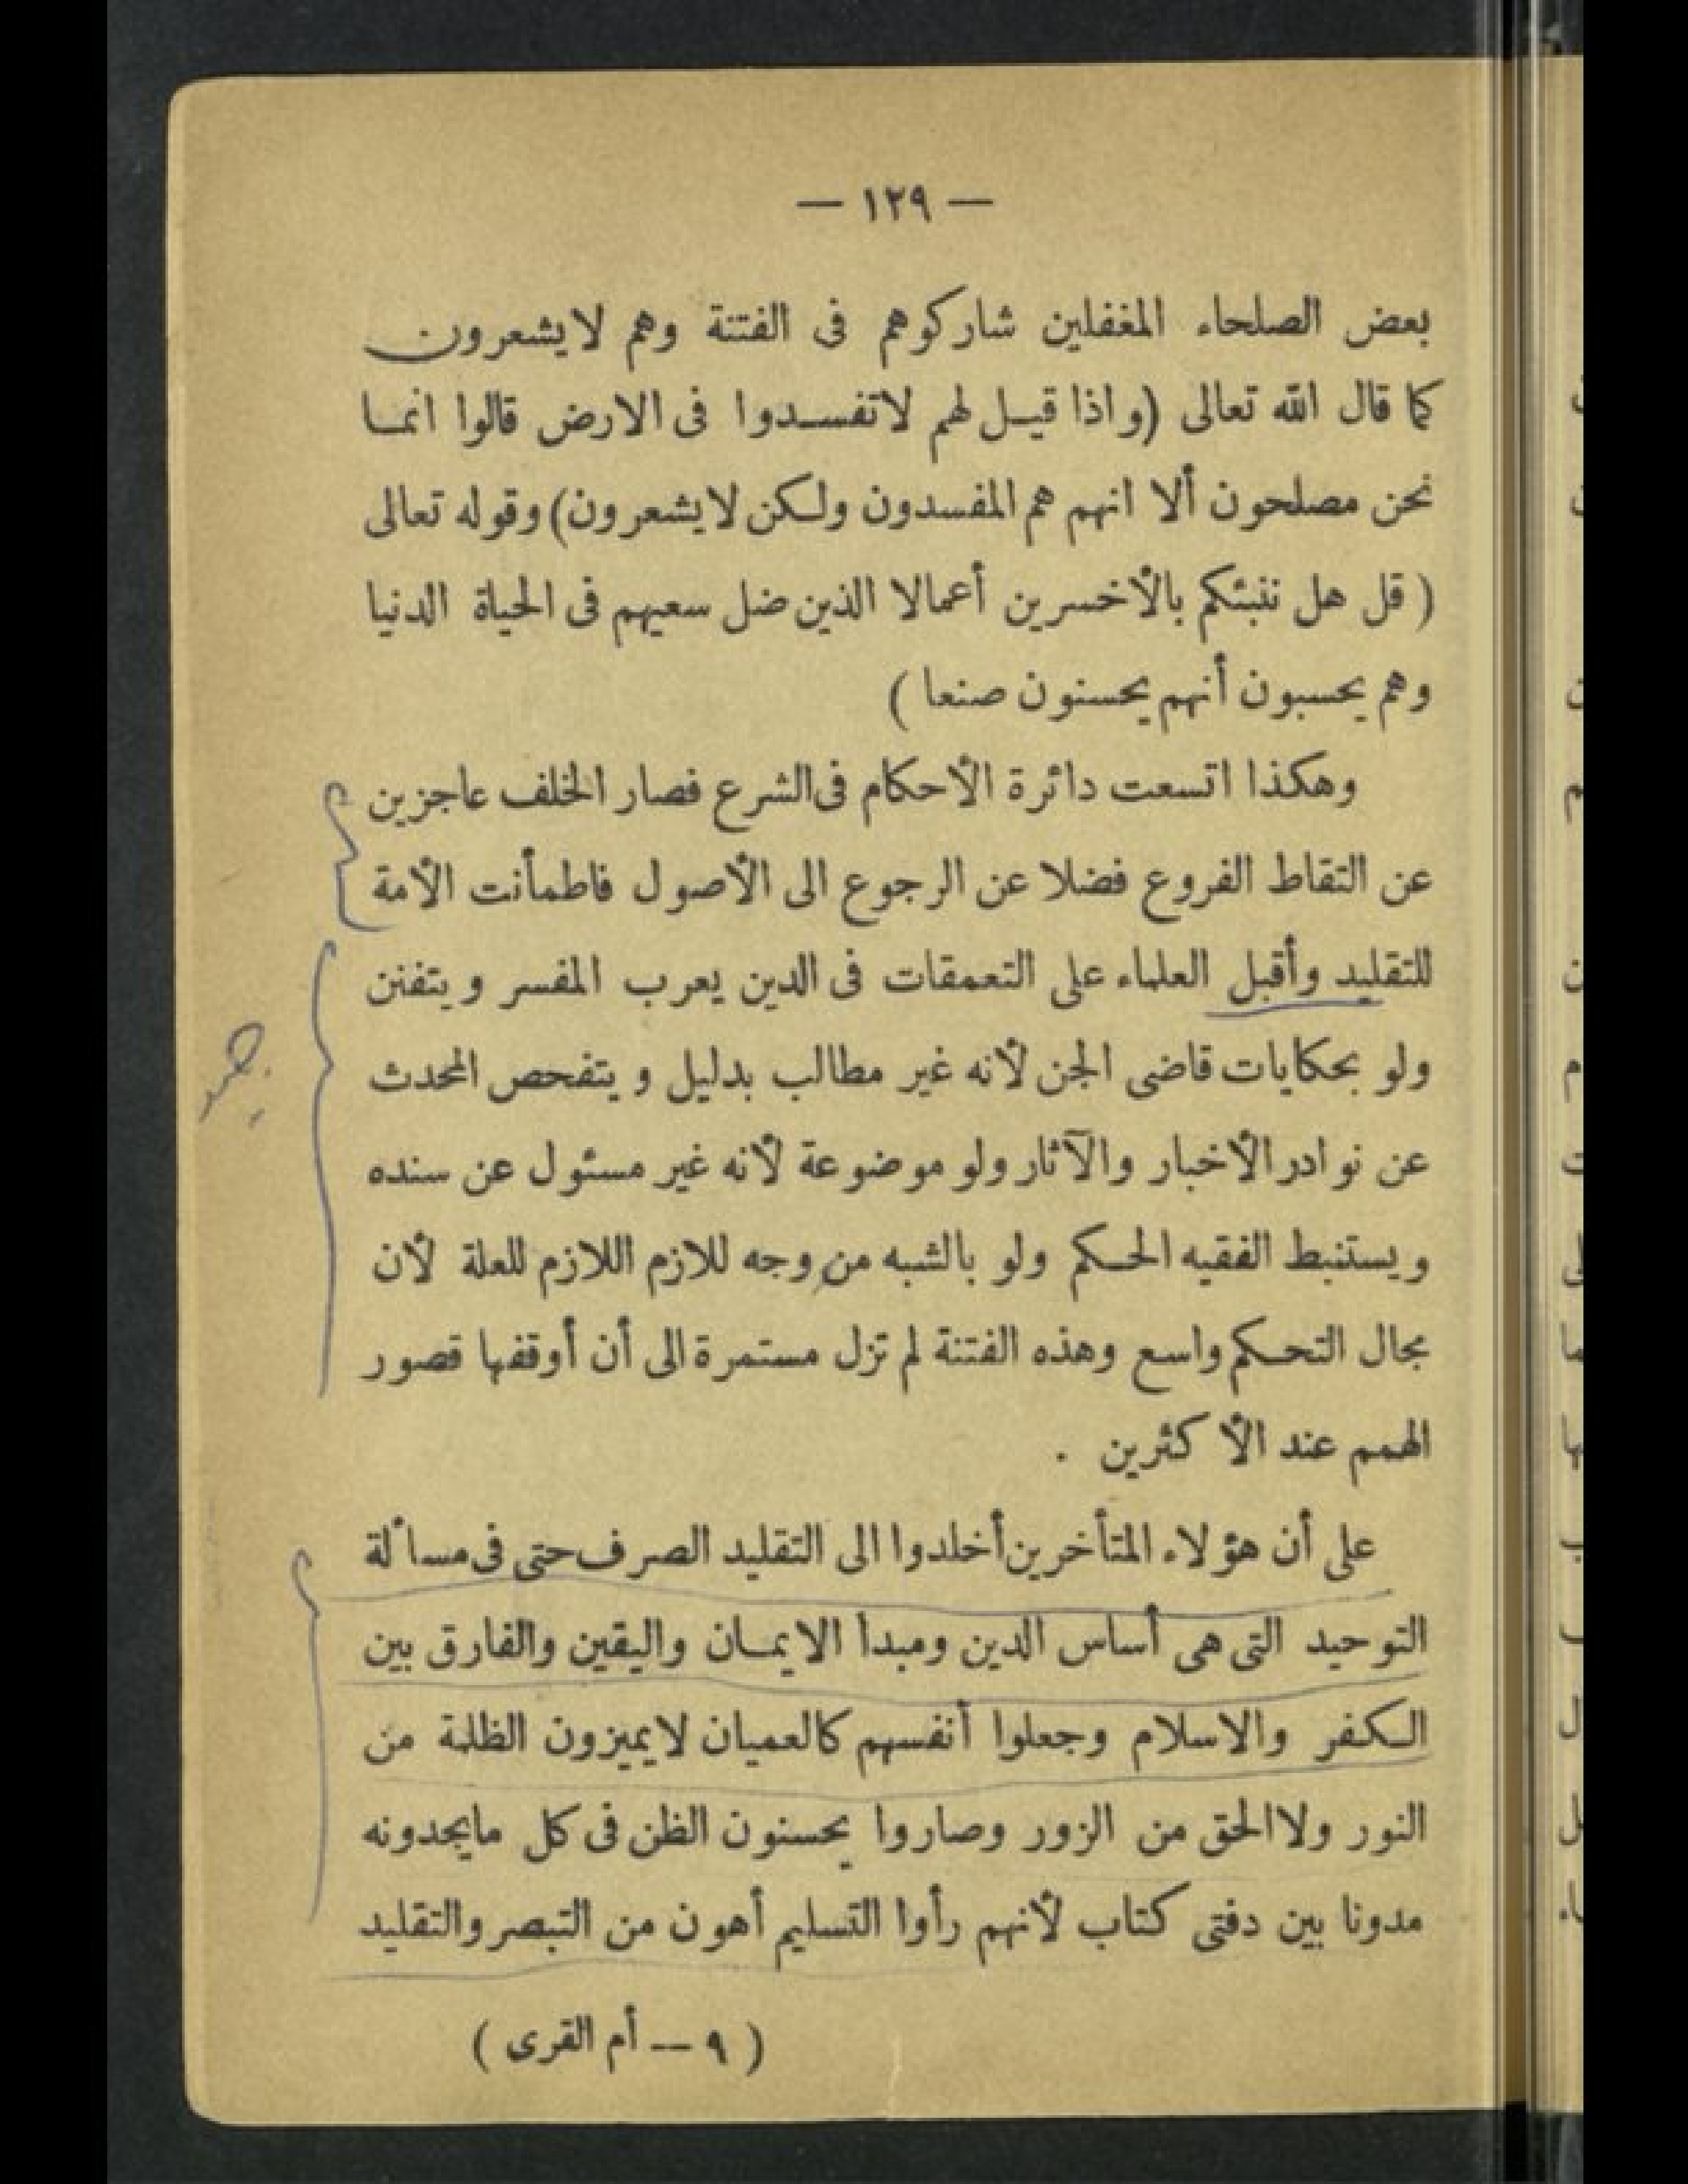 — ١٢٩ —
بعض الصلحاء المغفلين شاركوهم فى الفتنة وهم لايشعرون
كما قال الله تعالى (واذا قيل لهم لاتفسدوا فى الارض قالوا انما
نحن مصلحون ألا انهم هم المفسدون ولكن لايشعرون) وقوله تعالى
( قل هل ننبئكم بالأخسرين أعمالا الذين ضل سعيهم فى الحياة الدنيا
وهم يحسبون أنهم يحسنون صنعا )
وهكذا اتسعت دائرة الأحكام فى الشرع فصار الخلف عاجزين
عن التقاط الفروع فضلا عن الرجوع الى الأصول فاطمأنت الأمة
للتقليد وأقبل العلماء على التعمقات فى الدين يعرب المفسر ويتفنن
ولو بحكايات قاضى الجن لأنه غير مطالب بدليل ويتفحص المحدث
عن نوادر الأخبار والآثار ولو موضوعة لأنه غير مسئول عن سنده
ويستنبط الفقيه الحكم ولو بالشبه من وجه للازم اللازم للعلة لأن
مجال التحكم واسع وهذه الفتنة لم تزل مستمرة الى أن أوقفها قصور
الهمم عند الأكثرين .
على أن هؤلاء المتأخرين أخلدوا الى التقليد الصرف حتى فى مسألة
التوحيد التى هى أساس الدين ومبدأ الايمان واليقين والفارق بين
الكفر والاسلام وجعلوا أنفسهم كالعميان لايميزون الظلمة من
النور ولا الحق من الزور وصاروا يحسنون الظن فى كل مايجدونه
مدونا بين دفتى كتاب لأنهم رأوا التسليم أهون من التبصر والتقليد
( ٩ — أم القرى )